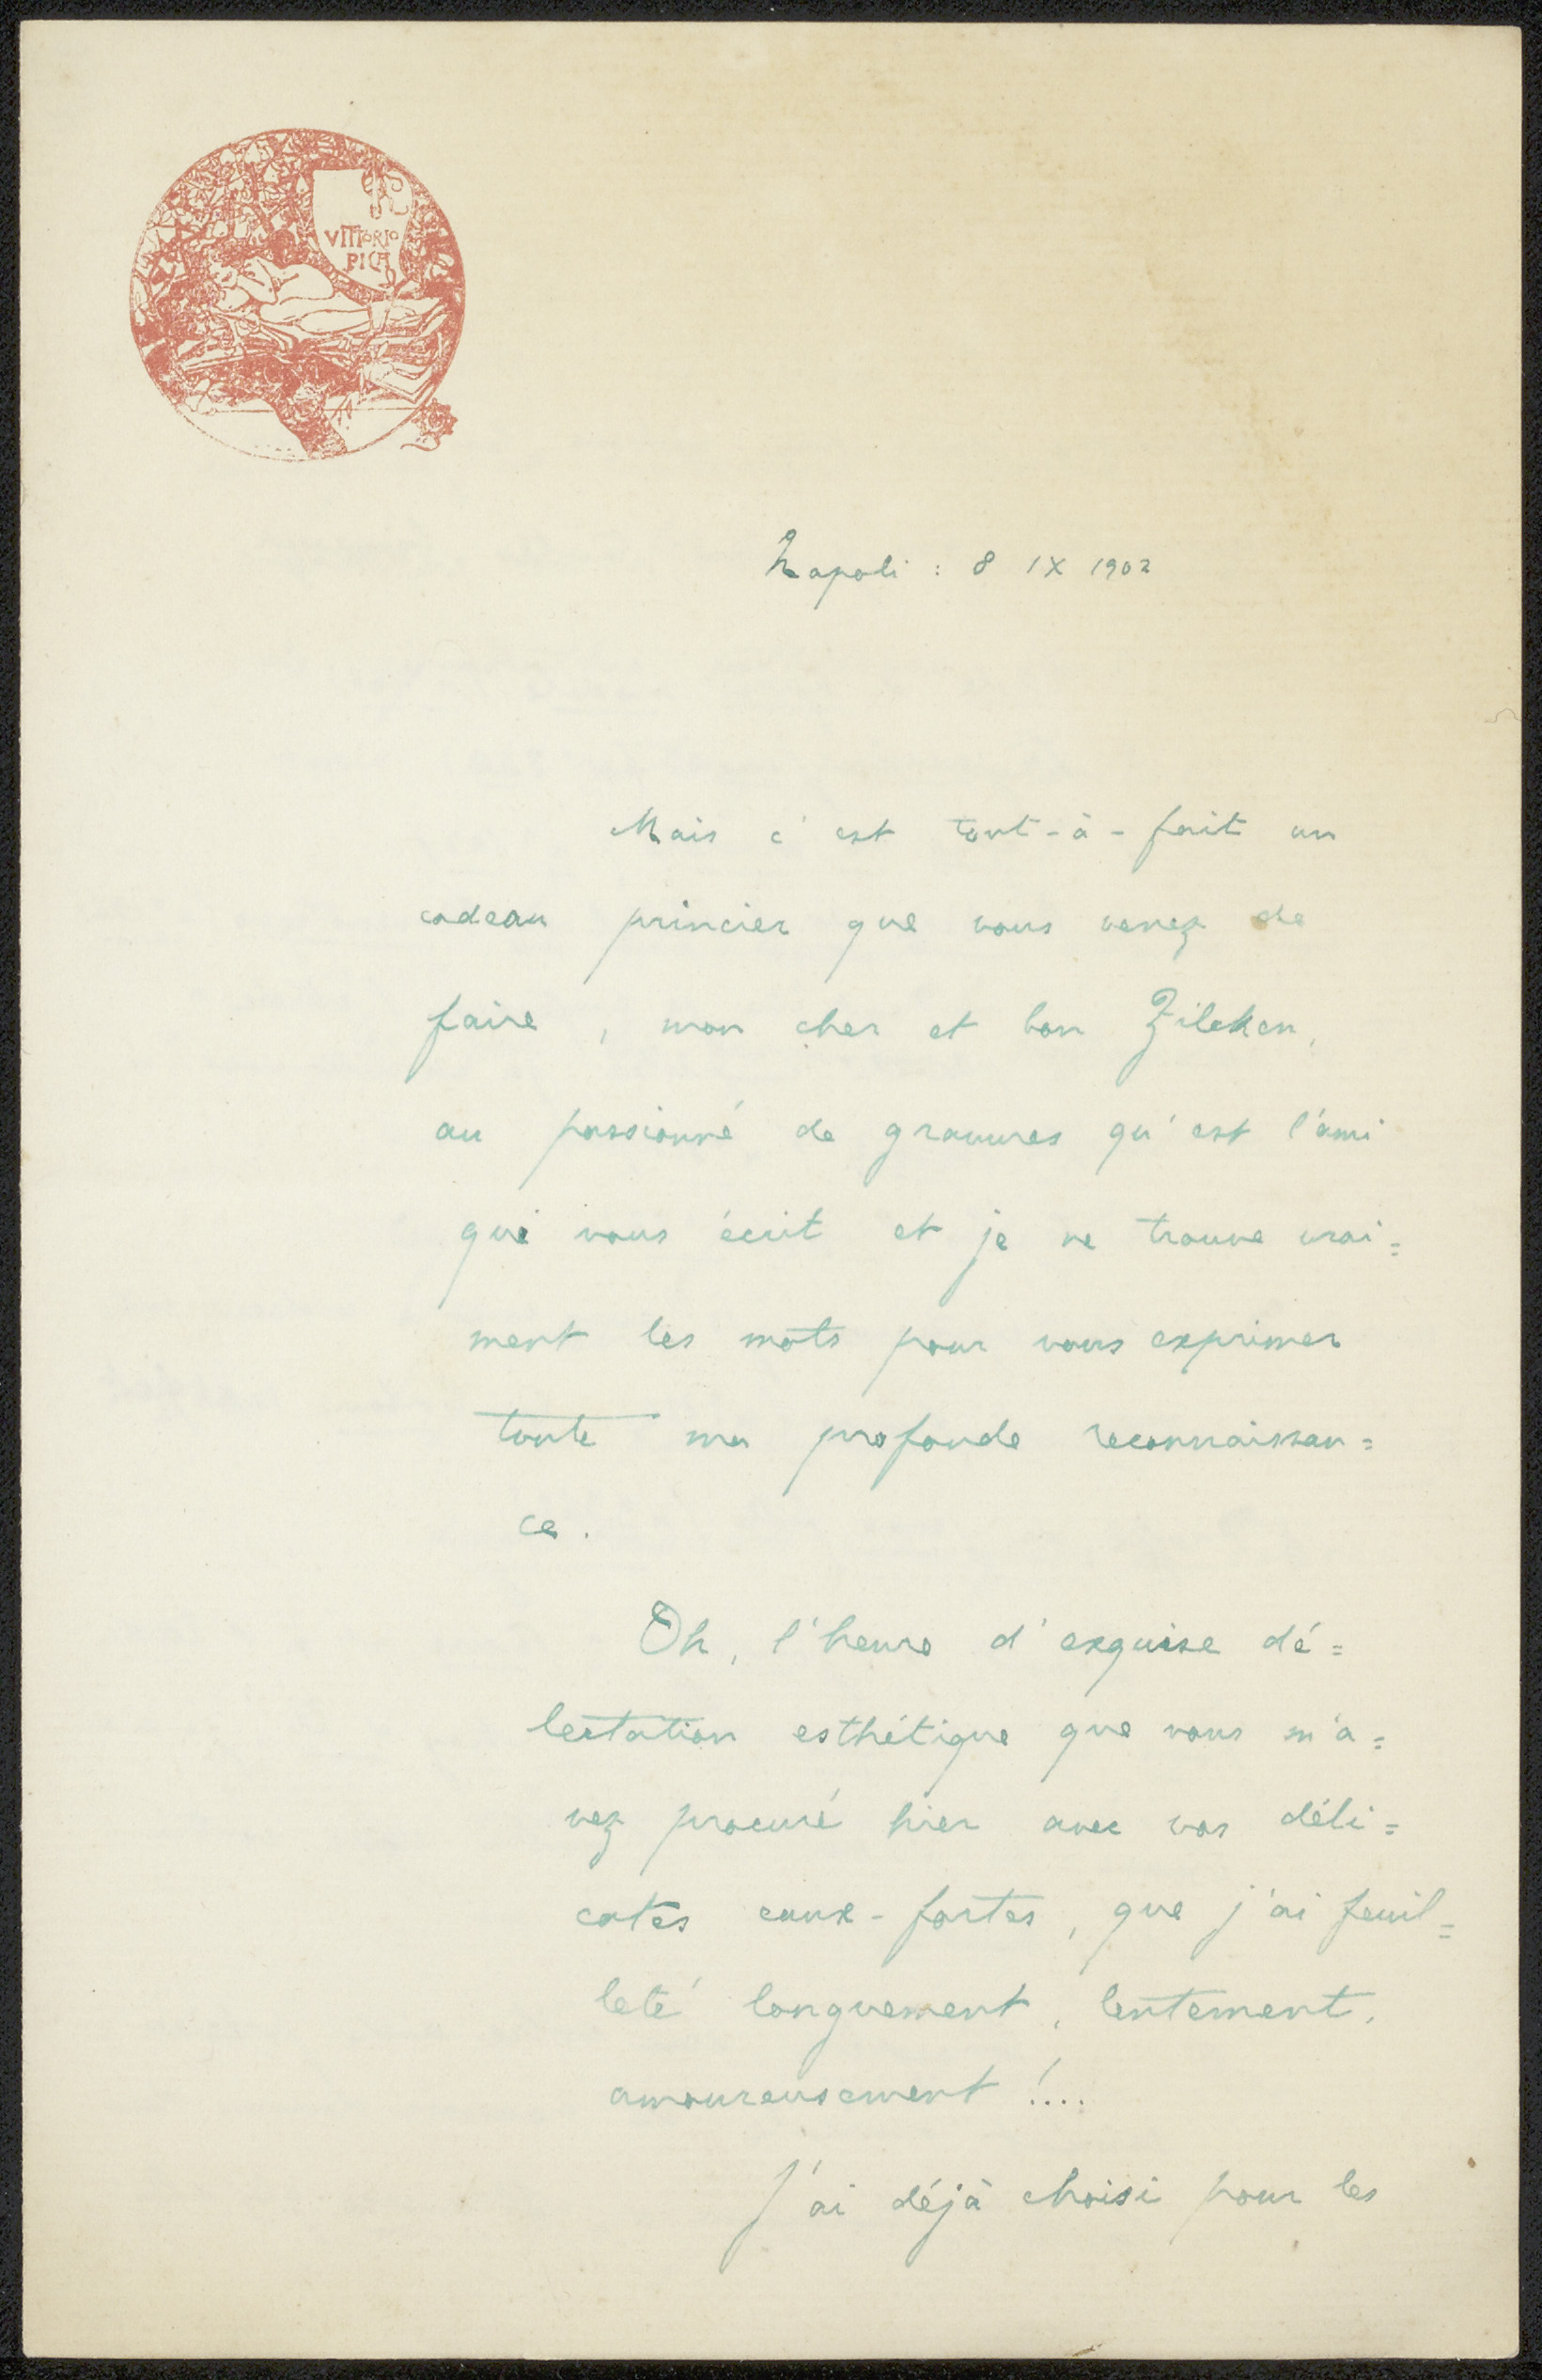 VITTORIO
PICA
Napoli : 8 IX 1902
Mais c'est tout-à-fait un
cadeau princier que vous venez de
faire, mon cher et bon Zilcken,
au passionné de gravures qu'est l'ami
qui vous écrit et je ne trouve vrai=
ment les mots pour vous exprimer
toute ma profonde reconnaissan=
ce.
Oh, l'heure d'exquise dé=
lectation esthétique que vous m'a=
vez procuré hier avec vos déli=
cates eaux-fortes, que j'ai feuil=
leté longuement, lentement,
amoureusement !....
J'ai déjà choisi pour les